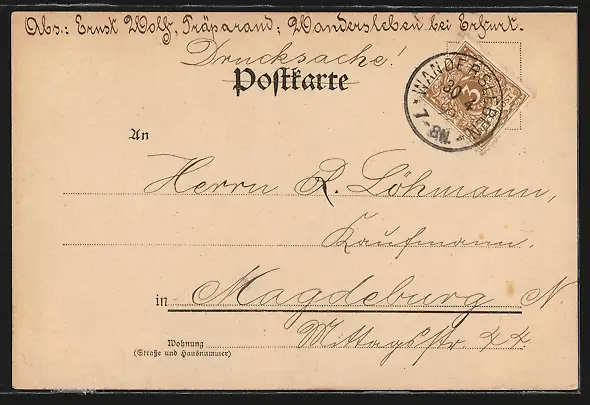 Abs.: Ernst Wolf, Präparand, Wandersleben bei Erfurt.
Drucksache!
Postkarte
WANDERSLEBEN
30
7-8N.
3
An
Herrn R. Löhmann,
Kaufmann.
in Magdeburg N.
Wohnung
(Straße und Hausnummer)
Mittagstr.